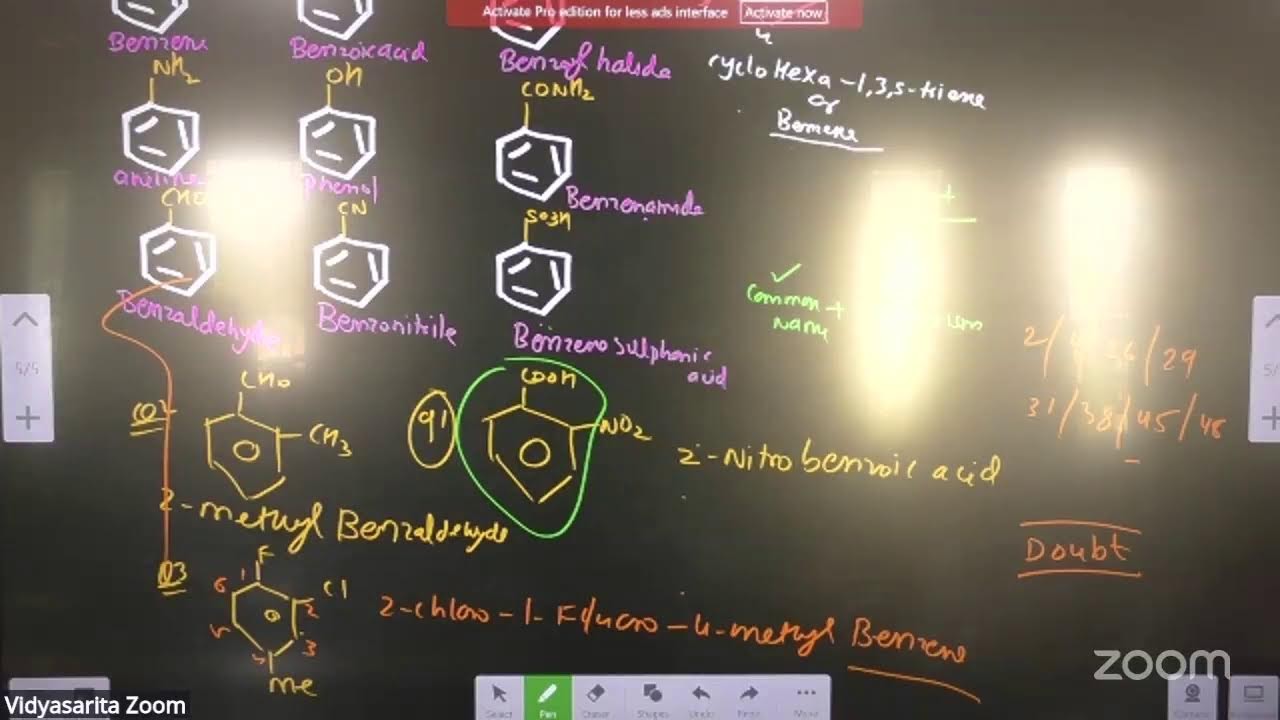 Activate Pro edition for less ads interface Activate now
Benzene
Benzoic acid
Benzoyl halide
cyclo Hexa-1,3,5-triene
or
Benzene
NH2
OH
CONH2
aniline
phenol
Benzenamide
CHO
CN
SO3H
Benzaldehyde
Benzonitrile
Benzene sulphonic
acid
✓
Common +
name
2/
29
31/38/45/48
5/5
CHO
CH3
COOH
NO2
2-Nitrobenzoic acid
2-methyl Benzaldehyde
Doubt
Q3
F
Cl
1
2
3
6
me
2-chloro-1-Fluoro-4-methyl Benzene
zoom
Vidyasarita Zoom
Select
Pen
Eraser
Shapes
Undo
Redo
More